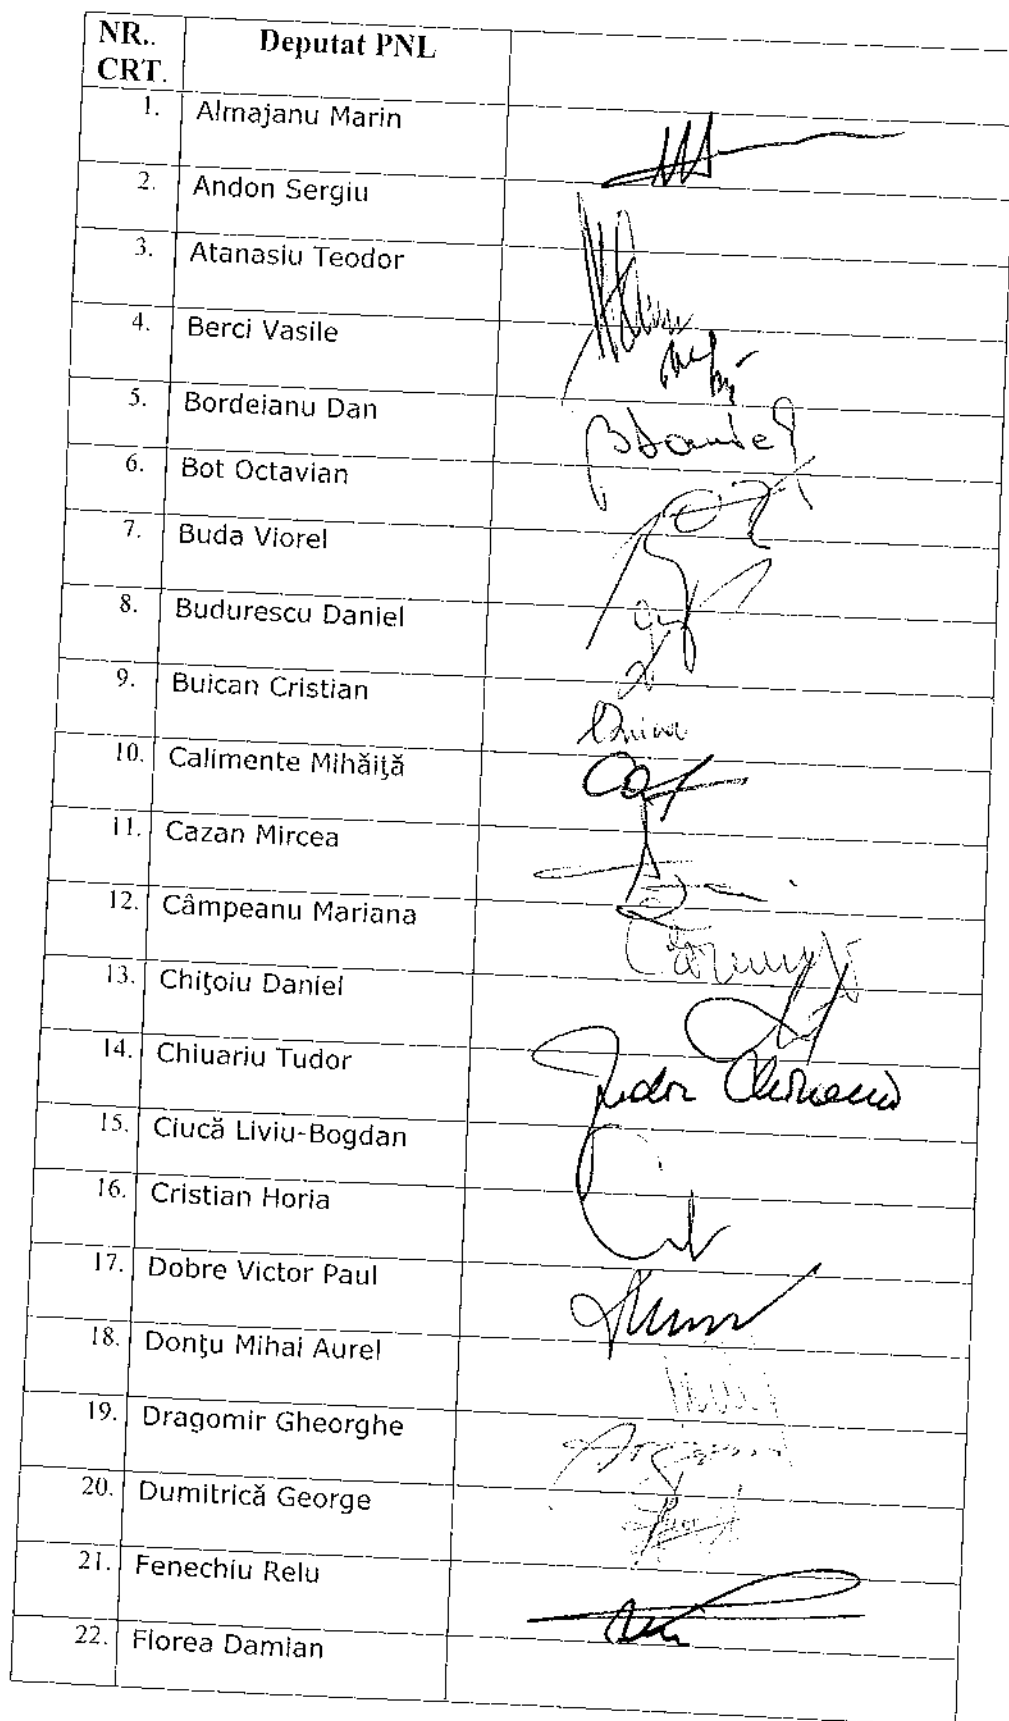 NR.. Deputat PNL
CRT.
1. Almajanu Marin
2. Andon Sergiu
3. Atanasiu Teodor
4. Berci Vasile
5. Bordeianu Dan
6. Bot Octavian
7. Buda Viorel
8. Budurescu Daniel
9. Buican Cristian
10. Calimente Mihăiţă
11. Cazan Mircea
12. Câmpeanu Mariana
13. Chiţoiu Daniel
14. Chiuariu Tudor
Tudor Chiuariu
15. Ciucă Liviu-Bogdan
16. Cristian Horia
17. Dobre Victor Paul
18. Donţu Mihai Aurel
19. Dragomir Gheorghe
20. Dumitrică George
21. Fenechiu Relu
22. Florea Damian